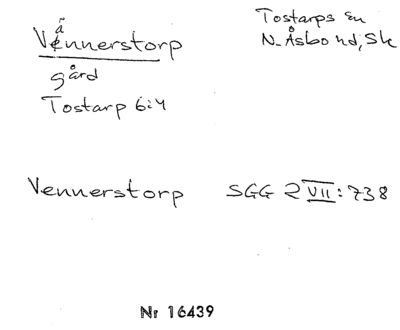 Vännerstorp
Tostarps sn
N. Åsbo hd, Sk
gård
Tostarp 6:4
Vennerstorp SGG 2 VII: 738
Nr 16439